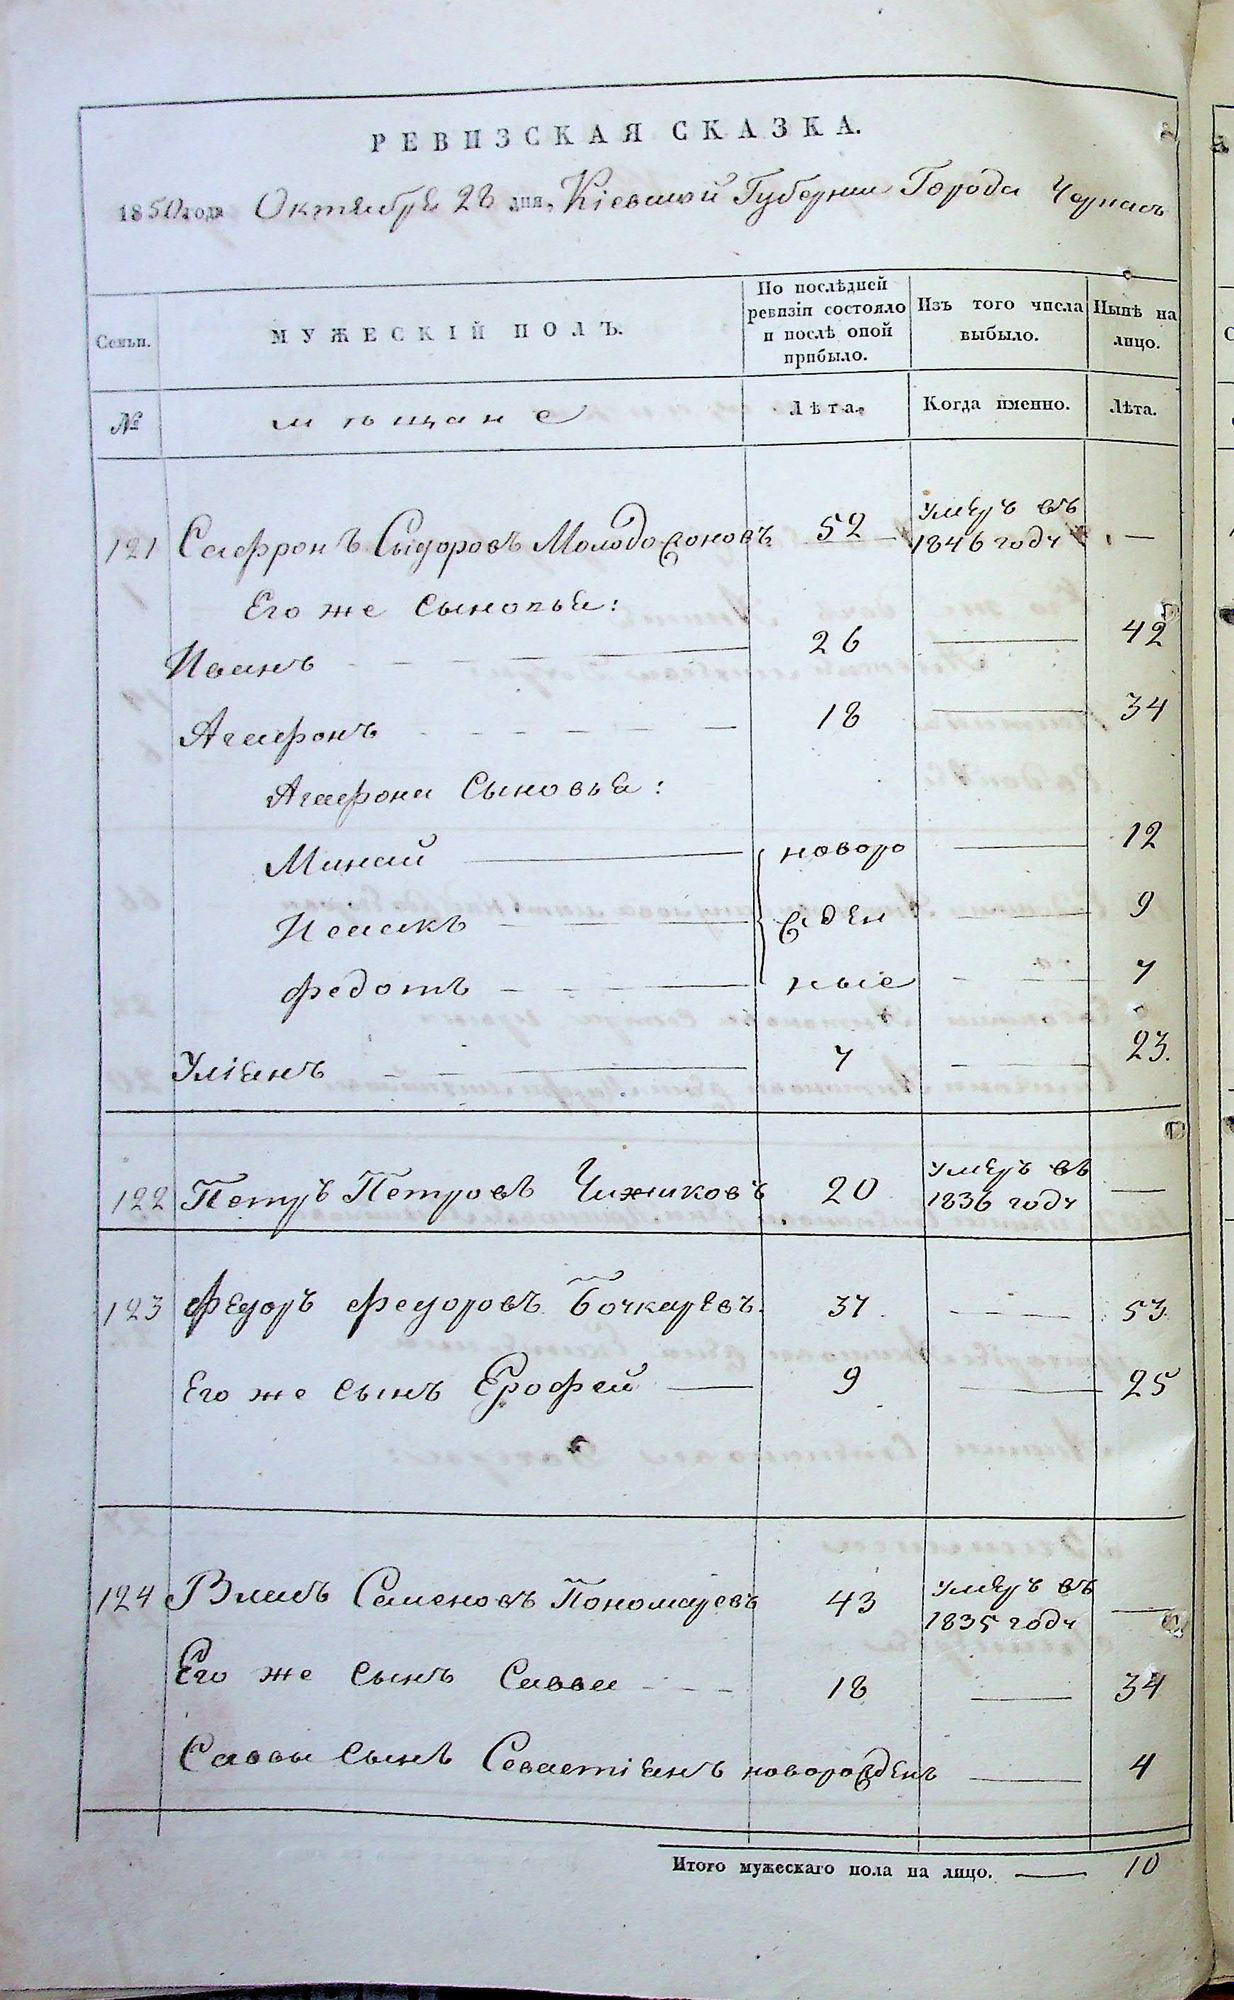 РЕВИЗСКАЯ СКАЗКА.
1850 года Октября 28 дня, Кіевской Губерніи Города Черкасъ
Семьи.
МУЖЕСКІЙ ПОЛЪ.
По послѣдней ревизіи состояло и послѣ оной прибыло.
Изъ того числа выбыло.
Нынѣ на лицо.
№
мѣщане
Лѣта.
Когда именно.
Лѣта.
121 Сафронъ Сыдоровъ Молодожоновъ 52 умеръ въ 1846 году —
Его же сыновья:
Иванъ — 26 — 42
Агафонъ — 18 — 34
Агафона сыновья:
Минай — новоро — 12
Исаакъ — жден — 9
Федотъ — ные — 7
Уліянъ — 7 — 23.
122 Петръ Петровъ Чижиковъ 20 умеръ въ 1836 году —
123 Федоръ Федоровъ Бочкаревъ. 37 — 53
Его же сынъ Ерофей — 9 — 25
124 Власъ Семеновъ Пономаревъ 43 умеръ въ 1835 году —
Его же сынъ Савва — 18 — 34
Саввы сынъ Севастіянъ новорожденъ — 4
Итого мужескаго пола на лицо. — 10